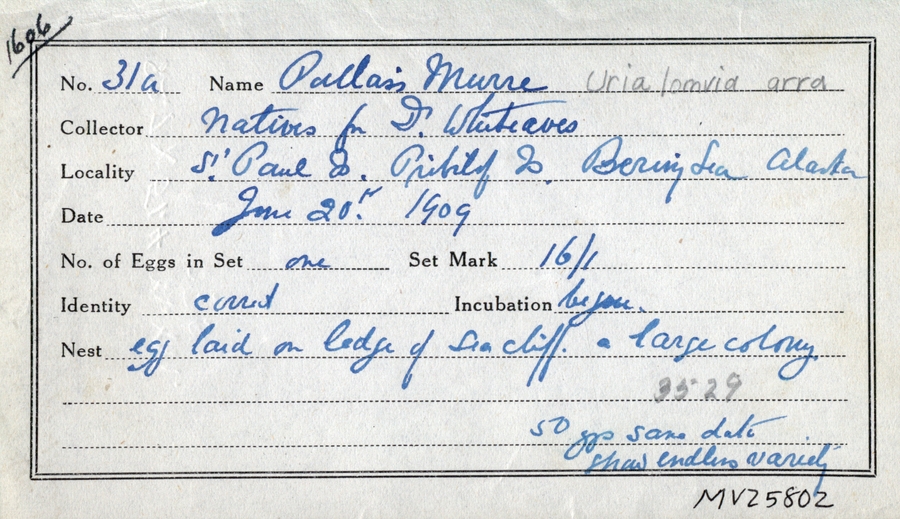 1606
No. 31a Name Pallas's Murre Uria lomvia arra
Collector Natives for Dr. Whiteaves
Locality St. Paul Is. Pribilof Is. Bering Sea Alaska
Date June 20th. 1909
No. of Eggs in Set one Set Mark 16/1
Identity correct Incubation begun.
Nest egg laid on ledge of Sea cliff. a large colony
3529
50 same date
show endless variety
MV25802